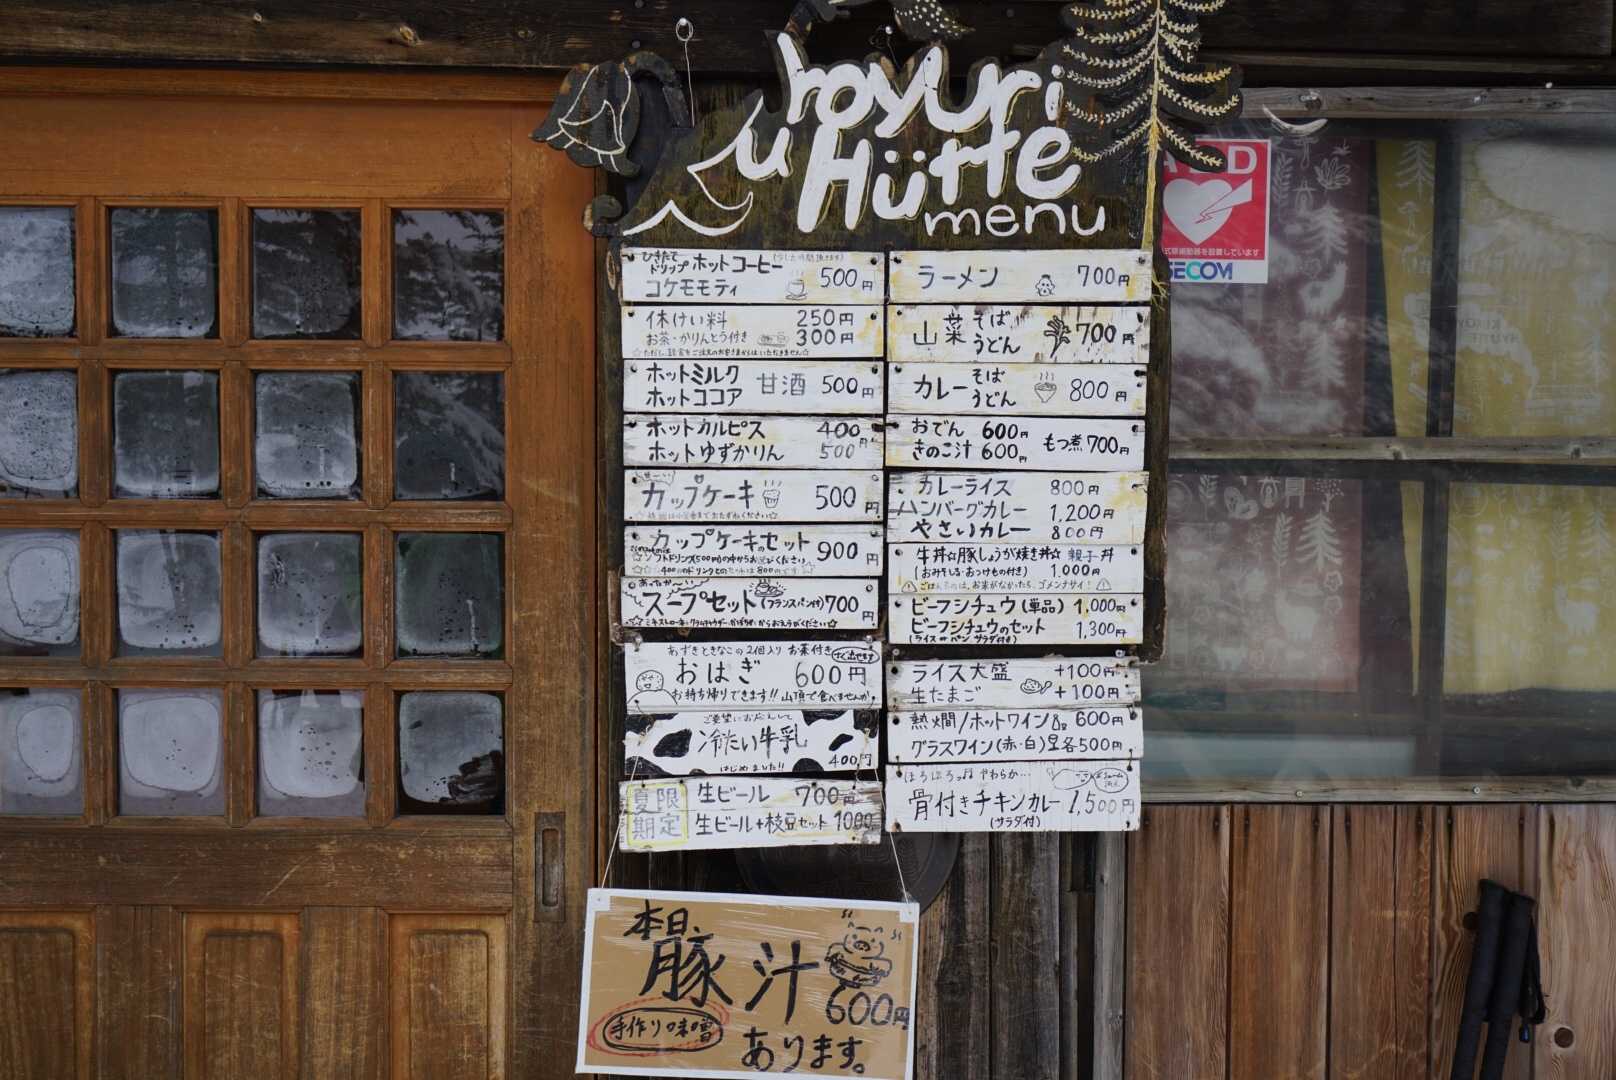 Kuroyuri
Hütte
menu
ひきたて
ドリップ ホットコーヒー
コケモモティ 500円
休けい料 250円
お茶・かりんとう付き 300円
ホットミルク
ホットココア 甘酒 500円
ホットカルピス 400円
ホットゆずかりん 500円
カップケーキ 500円
カップケーキのセット 900円
ソフトドリンク500円の中からお選びください
あったか〜い
スープセット(フランスパン付) 700円
あずきときなこの2個入り お茶付き すぐ出せます
おはぎ 600円
お持ち帰りできます!! 山頂で食べませんか
ご要望にお応えして
冷たい牛乳
はじめました!! 400円
夏限
期定
生ビール 700円
生ビール+枝豆セット 1000
ラーメン 700円
山菜 そば
うどん 700円
カレー そば
うどん 800円
おでん 600円
きのこ汁 600円 もつ煮 700円
カレーライス 800円
ハンバーグカレー 1,200円
やさいカレー 800円
牛丼☆豚しょうが焼き丼☆ 親子丼
(おみそしる・おつけもの付き) 1,000円
ごはんものは、お米がなかったら、ゴメンナサイ!
ビーフシチュウ(単品) 1,000円
ビーフシチュウのセット 1,300円
(ライス or パン サラダ付き)
ライス大盛 +100円
生たまご +100円
熱燗/ホットワイン 600円
グラスワイン(赤・白) 各500円
ほろほろっ♫ やわらか…
骨付きチキンカレー 1,500円
(サラダ付)
本日、
豚汁
600円
手作り味噌
あります。
AED
SECOM